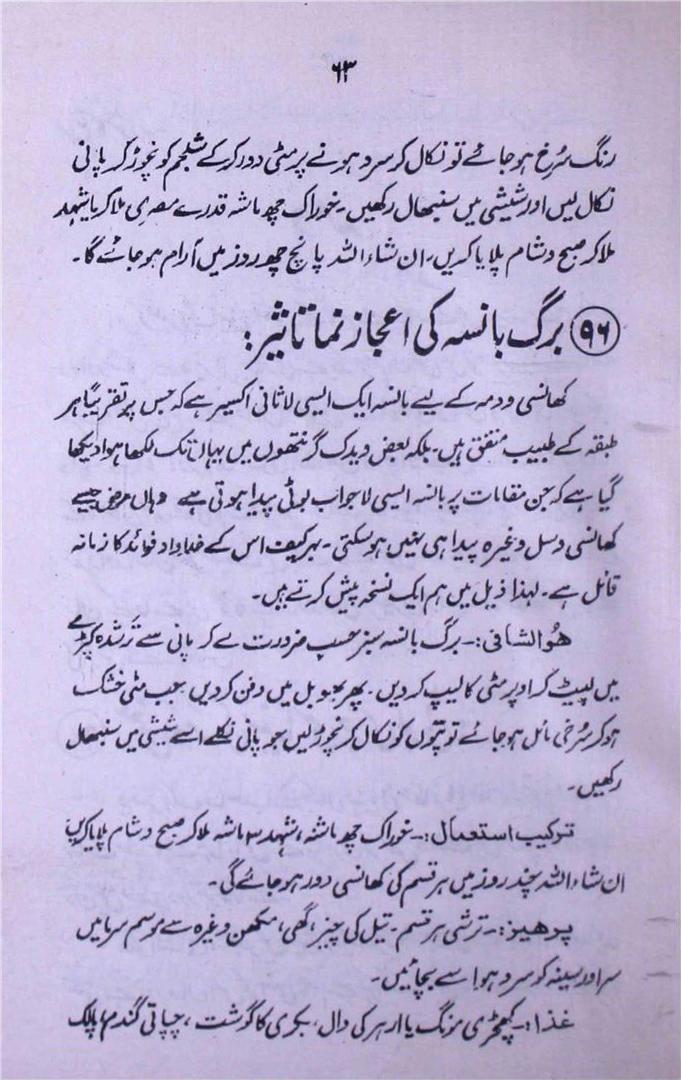 ۶۳
رنگ سُرخ ہو جائے تو نکال کر سرد ہونے پر مٹی دور کر کے شلجم کو نچوڑ کر پانی
نکال لیں اور شیشی میں سنبھال رکھیں۔ خوراک چھ ماشہ قدرے مصری ملا کر یا شہد
ملا کر صبح و شام پلایا کریں۔ ان شاء اللہ پانچ چھ روز میں آرام ہو جائے گا۔
۹۶ برگ بانسہ کی اعجاز نما تاثیر:
کھانسی و دمہ کے لیے بانسہ ایک ایسی لاثانی اکسیر ہے کہ جس پر تقریباً ہر
طبقہ کے طبیب متفق ہیں۔ بلکہ بعض ویدک گرنتھوں میں یہاں تک لکھا ہوا دیکھا
گیا ہے کہ جن مقامات پر بانسہ ایسی لاجواب بوٹی پیدا ہوتی ہے وہاں مرض جیسے
کھانسی و سل وغیرہ پیدا ہی نہیں ہو سکتی۔ بہرکیف اس کے خداداد فوائد کا زمانہ
قائل ہے۔ لہذا ذیل میں ہم ایک نسخہ پیش کرتے ہیں۔
ھُوَالشافی:۔ برگ بانسہ سبز حسب ضرورت لے کر پانی سے تر شدہ کپڑے
میں لپیٹ کر اوپر مٹی کا لیپ کر دیں۔ پھر بھوبل میں دفن کر دیں۔ جب مٹی خشک
ہو کر سُرخی مائل ہو جائے تو پتوں کو نکال کر نچوڑ لیں جو پانی نکلے اسے شیشی میں سنبھال
رکھیں۔
ترکیب استعمال:۔ خوراک چھ ماشہ، شہد ۳ ماشہ ملا کر صبح و شام پلایا کریں
ان شاء اللہ چند روز میں ہر قسم کی کھانسی دور ہو جائے گی۔
پرھیز:۔ ترشی ہر قسم۔ تیل کی چیز، گھی، مکھن وغیرہ سے موسم سرما میں
سر اور سینہ کو سرد ہوا سے بچائیں۔
غذا:۔ کھچڑی مونگ یا ارہر کی دال، بکری کا گوشت، چپاتی گندم، پالک